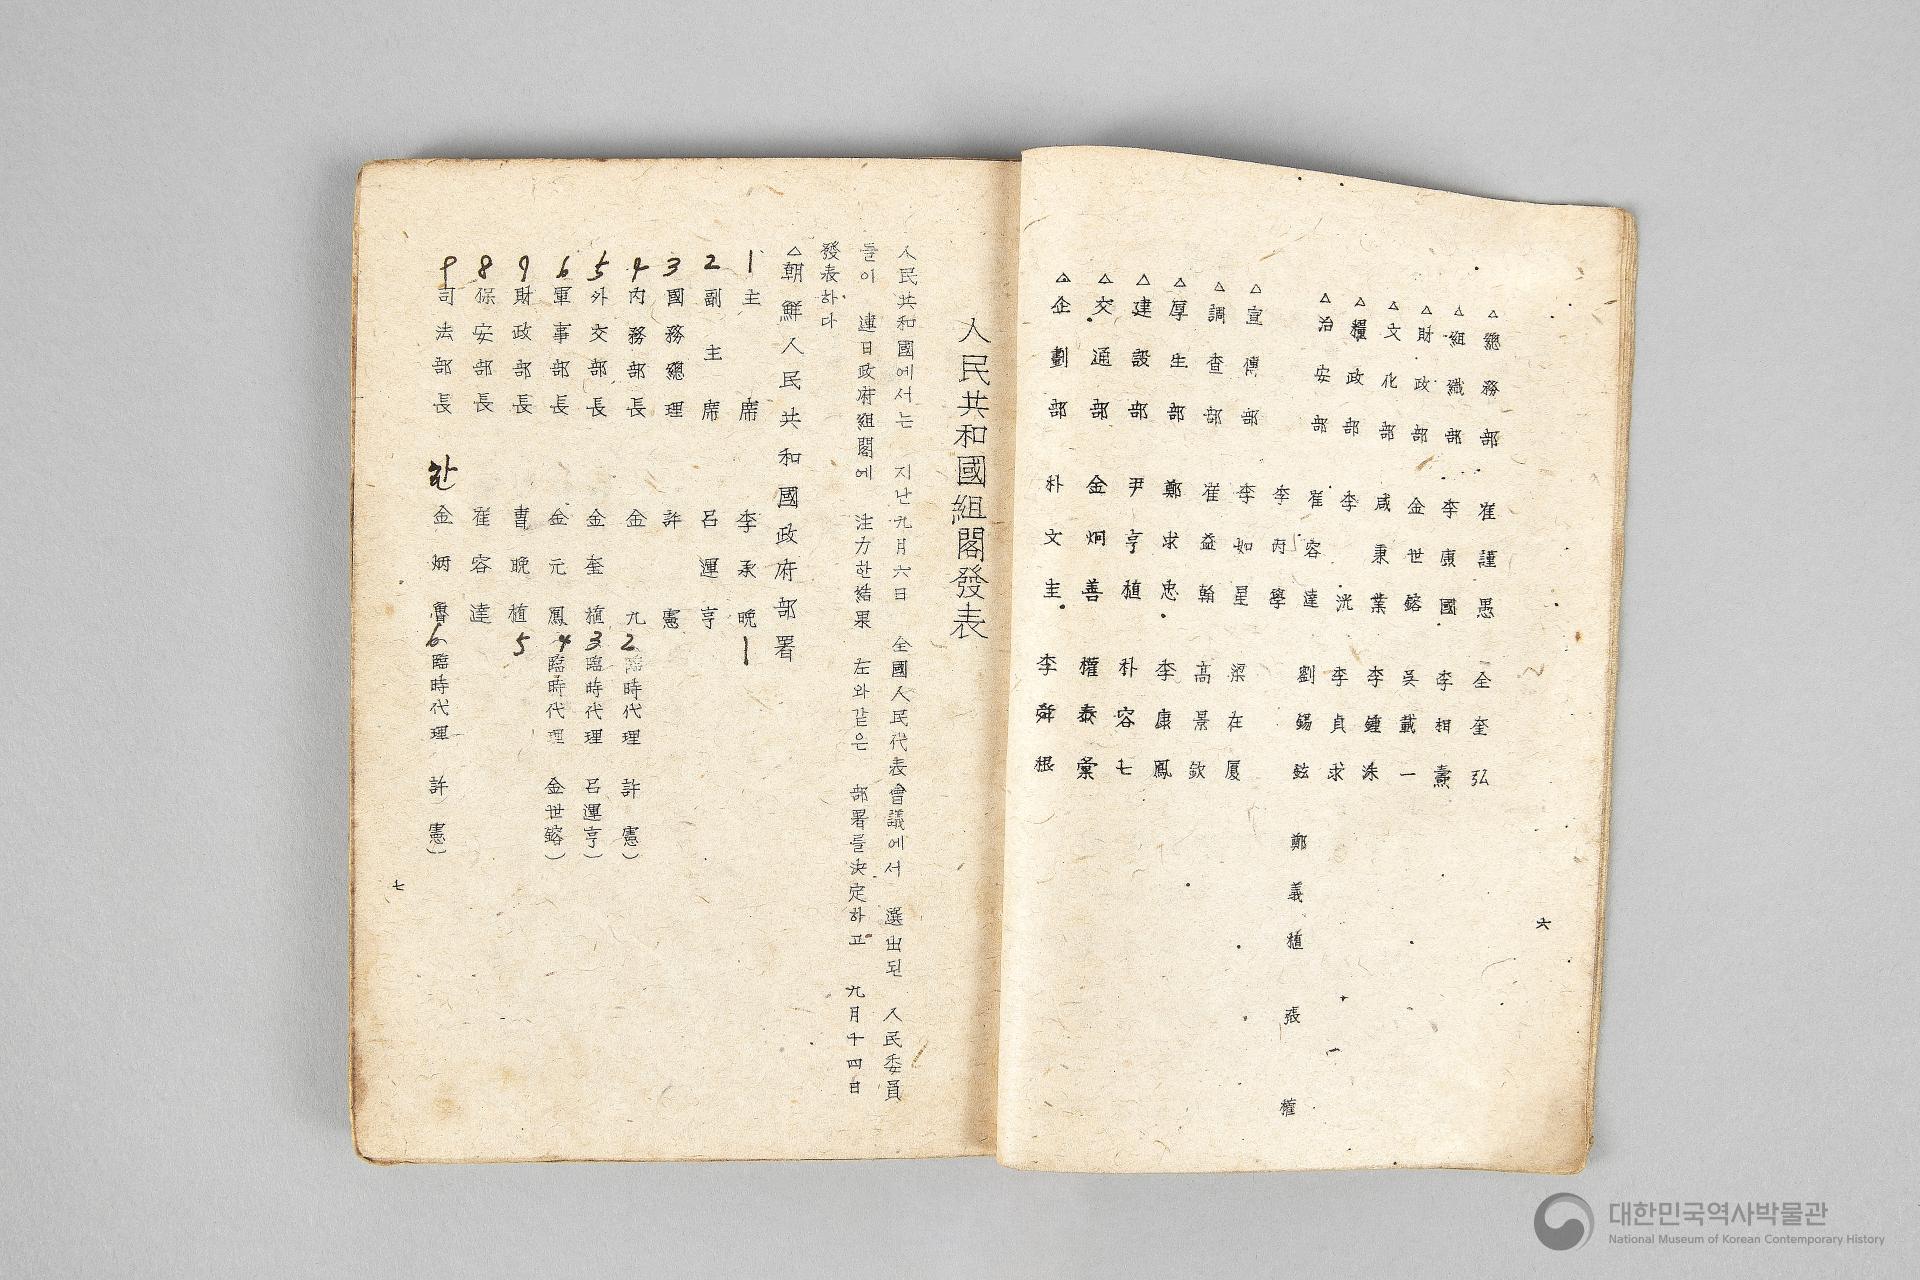 △總務部 崔謹愚 全奎弘
△組織部 李康國 李相燾
△財政部 金世鎔 吳載一
△文化部 咸秉業 李鍾洙
△糧政部 李洸 李貞求
△治安部 崔容達 劉錫鉉 鄭義植 張權
李丙學
△宣傳部 李如星 梁在厦
△調査部 崔益翰 高景欽
△厚生部 鄭求忠 李康鳳
△建設部 尹亨植 朴容七
△交通部 金炯善 權泰彙
△企劃部 朴文圭 李舜根
六
人民共和國組閣發表
人民共和國에서는 지난九月六日 全國人民代表會議에서 選出된 人民委員
들이 連日政府組閣에 注力한結果 左와같은 部署를決定하고 九月十四日
發表하다
△朝鮮人民共和國政府部署
1 主席 李承晩 1
2 副主席 呂運亨
3 國務總理 許憲
4 內務部長 金九 2 臨時代理 許憲)
5 外交部長 金奎植 3 臨時代理 呂運亨)
6 軍事部長 金元鳳 4 臨時代理 金世鎔)
7 財政部長 曺晩植 5
8 保安部長 崔容達
9 司法部長 金炳魯 6 臨時代理 許憲)
七
대한민국역사박물관
National Museum of Korean Contemporary History